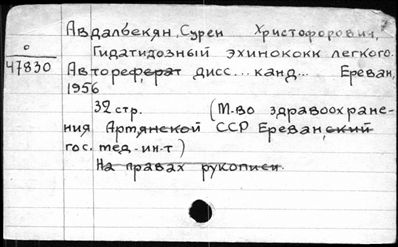 Авдалбекян, Сурен Христофорович,
о
47830
Гидатидозный эхинококк легкого.
Автореферат дисс... канд... Ереван,
1956
32 стр. (М-во здравоохране-
ния Армянской ССР Ереванский
гос. мед. ин-т)
На правах рукописи.